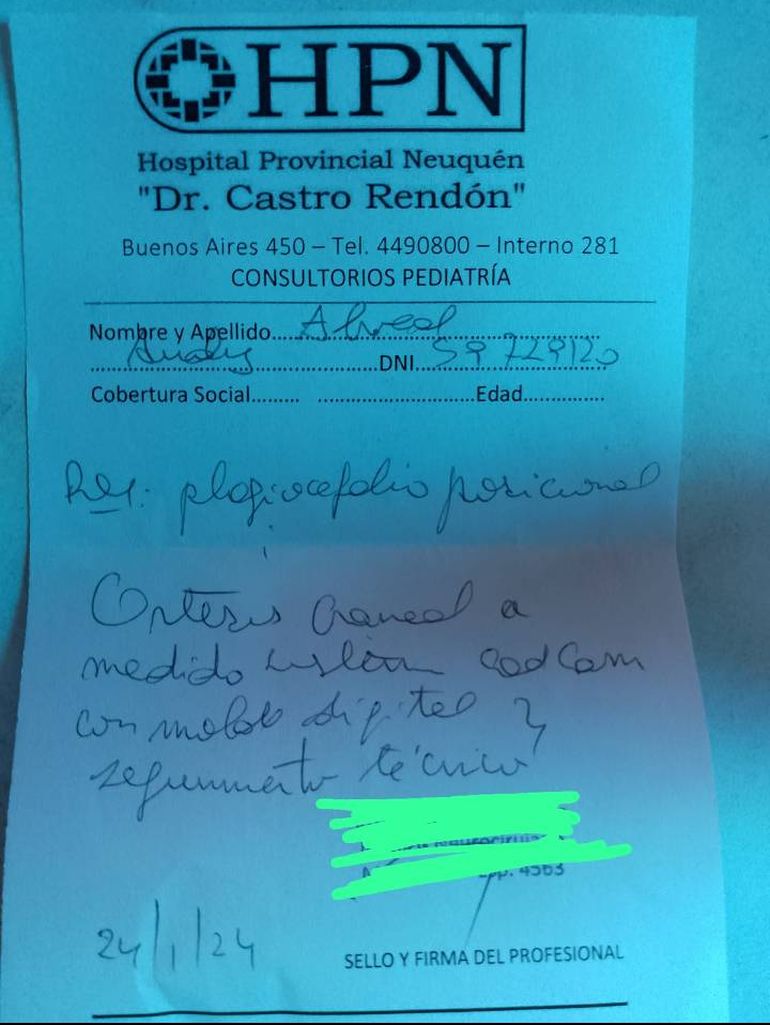 HPN
Hospital Provincial Neuquén
"Dr. Castro Rendón"
Buenos Aires 450 – Tel. 4490800 – Interno 281
CONSULTORIOS PEDIATRÍA
Nombre y Apellido
DNI 59 729120
Cobertura Social Edad
plagiocefalia posicional
Ortesis craneal a
medida sistema cad cam
con molde digital y
seguimiento técnico
4563
24/1/24
SELLO Y FIRMA DEL PROFESIONAL